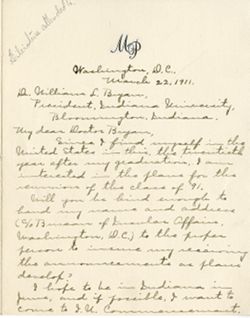 Distinctive attended to.
MP
Washington, D.C.,
March 22, 1911.
Dr. William L. Bryan,
President, Indiana University,
Bloomington, Indiana.
My dear Doctor Bryan,
Since I find myself in the
United States in this the twentieth
year after my graduation, I am
interested in the plans for the
reunion of the class of '91.
Will you be kind enough to
hand my name and address
(c/o Bureau of Insular Affairs,
Washington, D.C.) to the proper
person to insure my receiving
the announcements as plans
develop?
I hope to be in Indiana in
June, and if possible, I want to
come to I.U. Commencement.